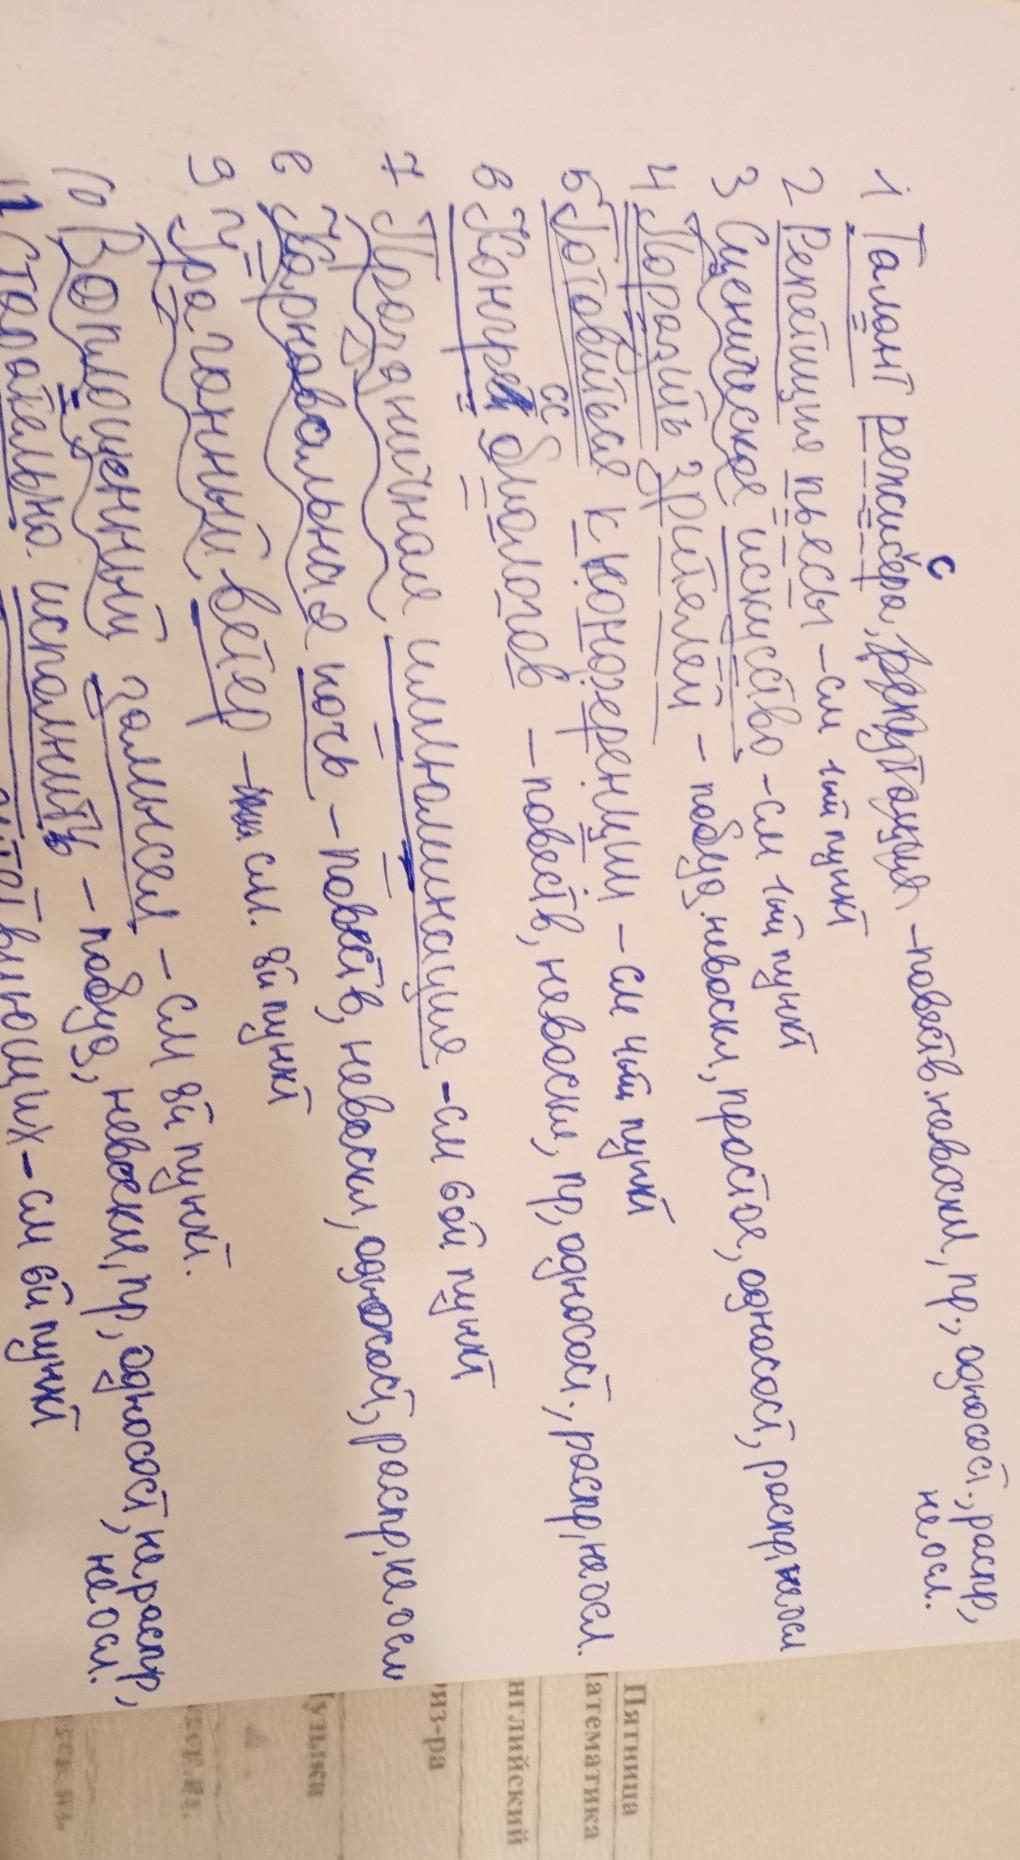 с
1 Талант режисёра, репутация – повеств. невоскл, пр., односост., распр,
не осл.
2 Репетиция пьесы – см 1ый пункт
3 Сценическое искуство – см 1ый пункт
4 Поразить зрителей – побуд. невоскл, простое, односост, распр, не осл
5 Готовиться к конференции – см 4ый пункт
сс
6 Конгре биологов – повеств, невоскл, пр, односост., распр, не осл.
7 Праздничная иллюминация – см 6ой пункт
8 Карнавальная ночь – повеств, невоскл, односост, распр, не осл
9 Ураганный ветер – см. 8й пункт
10 Воплощенный замысел – см 8й пункт.
11 Старательно исполнить – побуд, невоскл, пр, односост, не распр,
не осл.
– см 6й пункт
Пятница
атематика
нглийский
из-ра
узыка